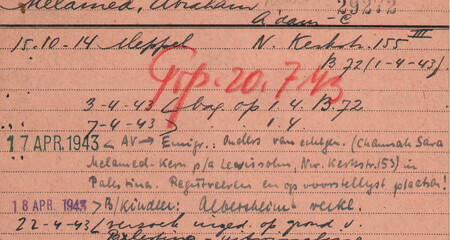 Melamed, Abraham
A'dam-C 29272
15.10-14 Meppel N. Kerkstr. 155 III
B 72 (1-4-43).
Trsp. 20.7.43
3-4-43 op 1.4. B.72
7-4-43 1.4
17 APR. 1943 < AV → Emigr.: Ouders van echtgen. (Channah Sara
Melamed-Kern p/a Lewisohn, Nw. Kerkstr. 153) in
Palestina. Registreren en op voorstellijst plaatsen!
18 APR. 1943 > B/Kindler: Albersheim
22-4-43 verzoek inged. op grond v.
Palestina